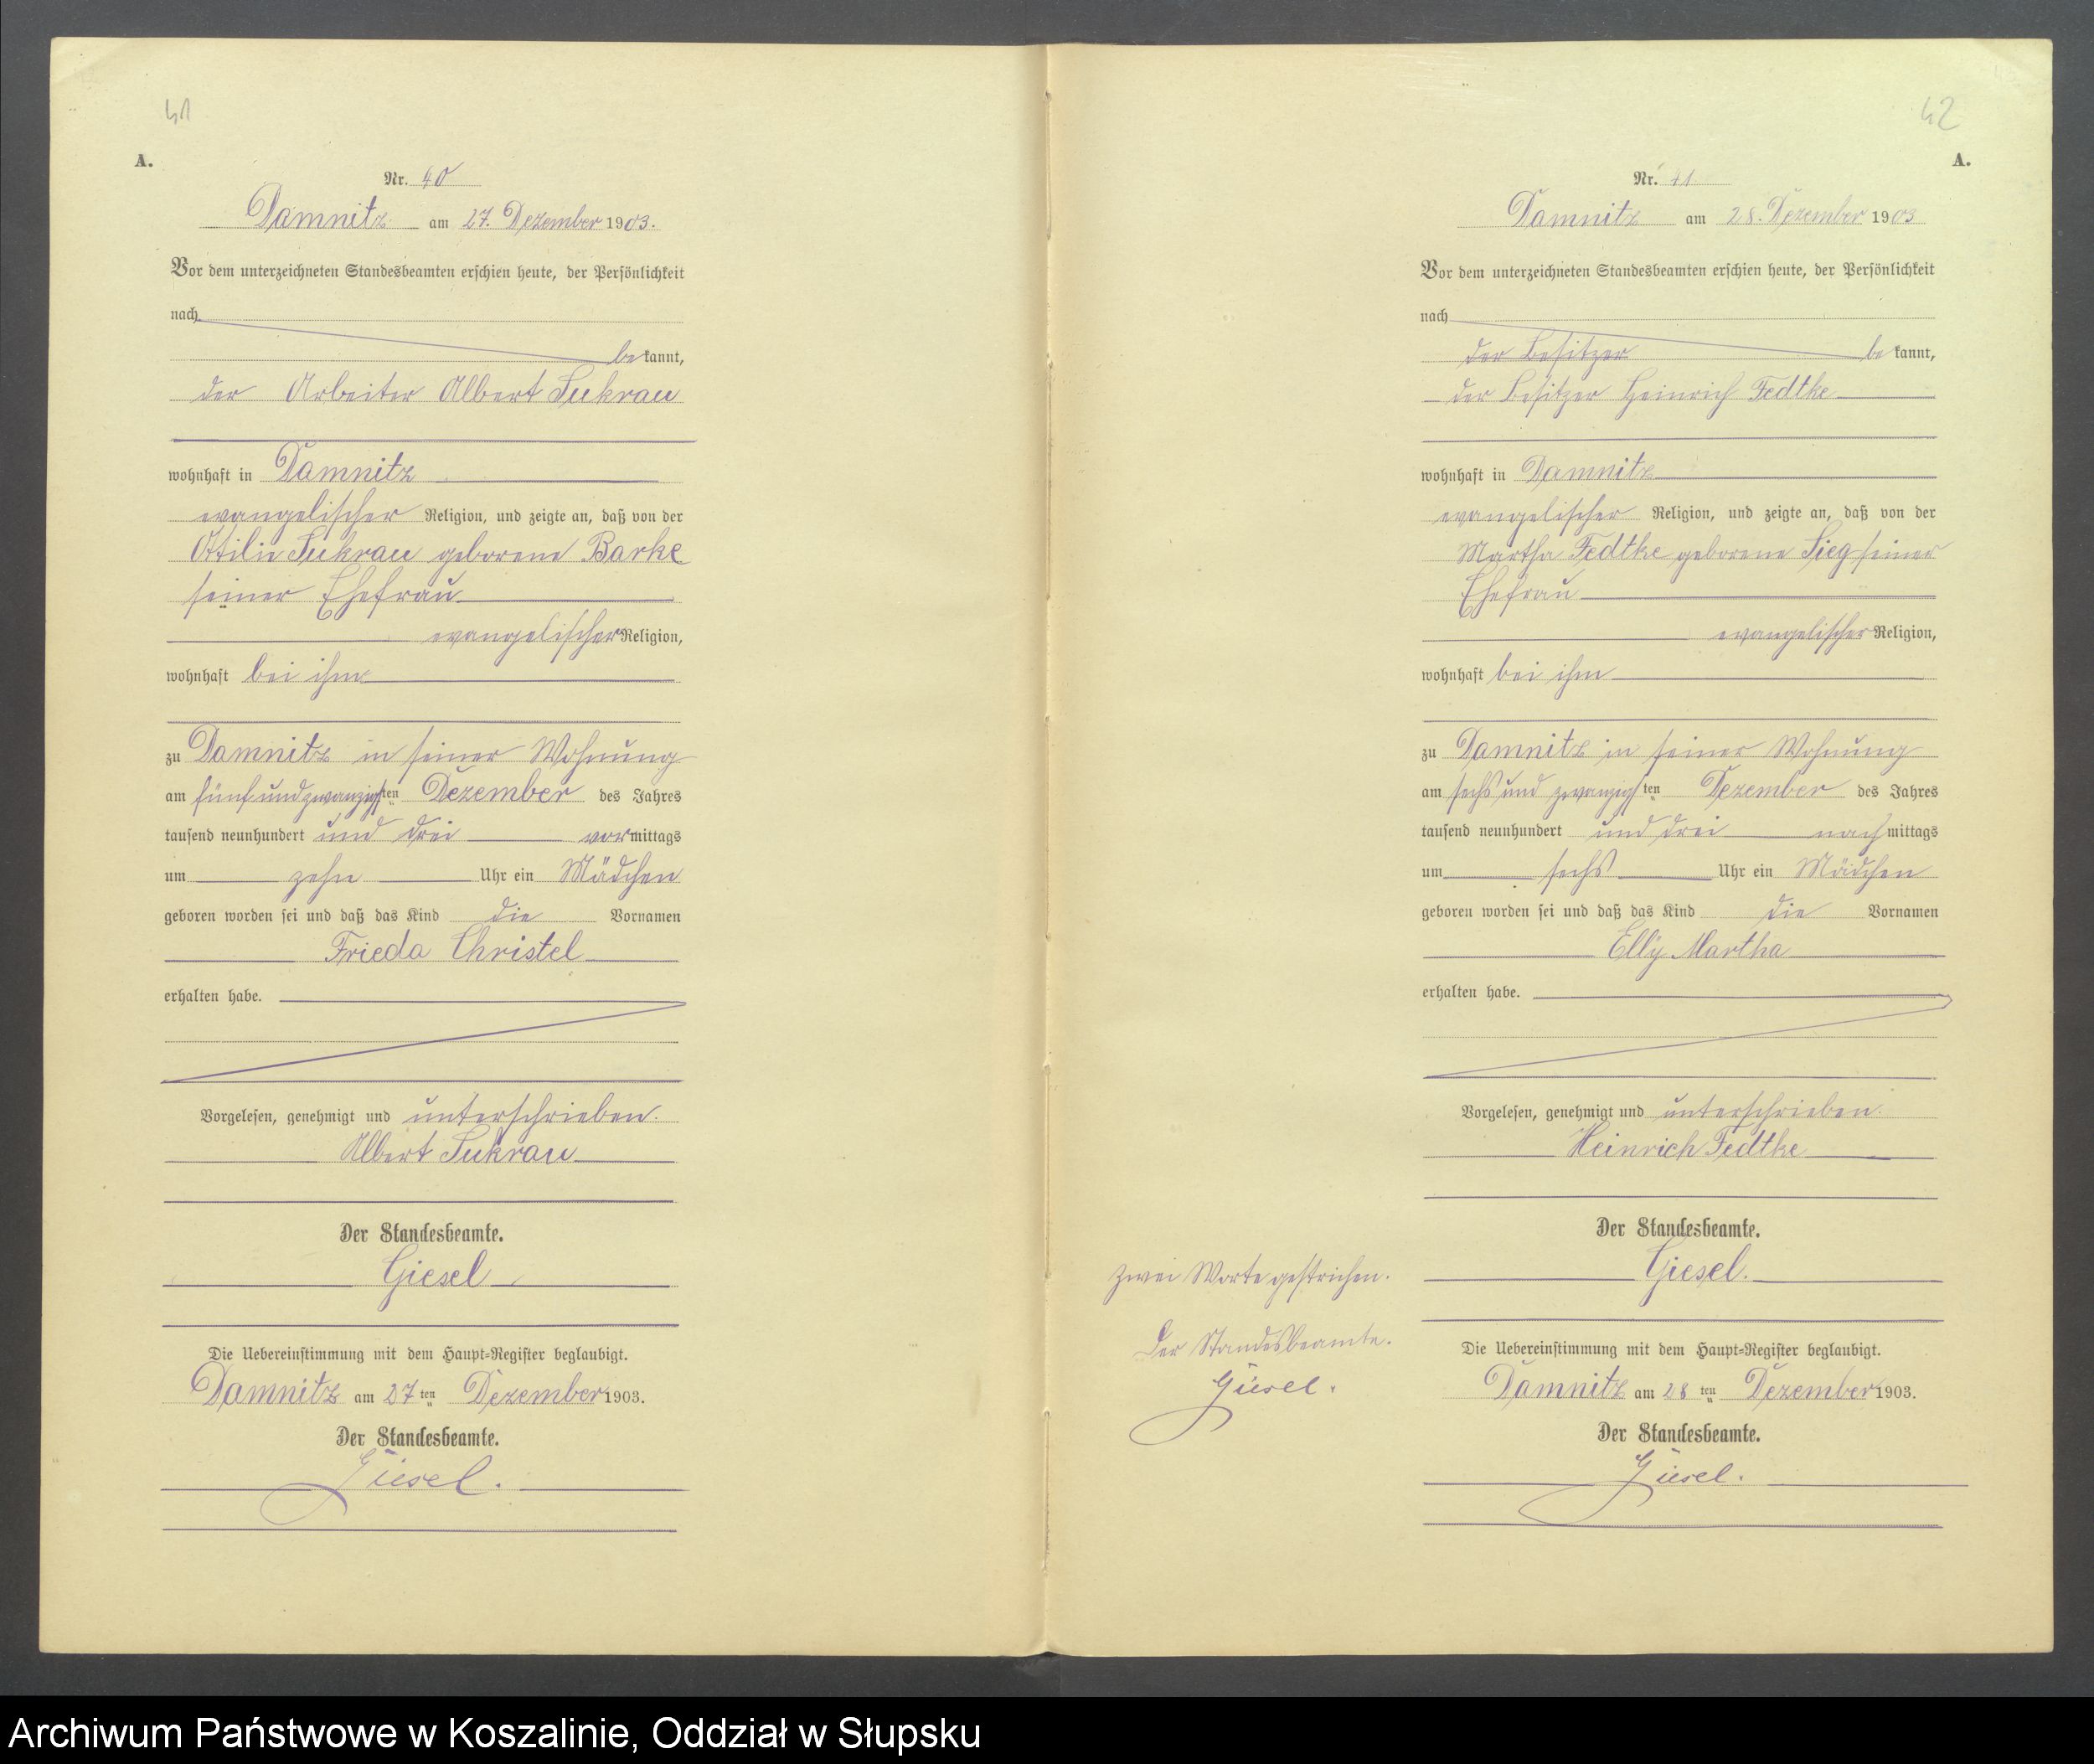 41
A.
Nr. 40
Damnitz am 27. Dezember 1903.
Vor dem unterzeichneten Standesbeamten erschien heute, der Persönlichkeit
nach
be kannt,
der Arbeiter Albert Sukrau
wohnhaft in Damnitz
evangelischer Religion, und zeigte an, daß von der
Ottilie Sukrau geborene Barke
seiner Ehefrau
evangelischer Religion,
wohnhaft bei ihm
zu Damnitz in seiner Wohnung
am fünf und zwanzigsten Dezember des Jahres
tausend neunhundert und drei vormittags
um zehn Uhr ein Mädchen
geboren worden sei und daß das Kind die Vornamen
Frieda Christel
erhalten habe.
Vorgelesen, genehmigt und unterschrieben.
Albert Sukrau
Der Standesbeamte.
Giesel
Die Uebereinstimmung mit dem Haupt-Register beglaubigt.
Damnitz am 27ten Dezember 1903.
Der Standesbeamte.
Giesel.
42
A.
Nr. 41
Damnitz am 28. Dezember 1903
Vor dem unterzeichneten Standesbeamten erschien heute, der Persönlichkeit
nach
der Besitzer be kannt,
der Besitzer Heinrich Fedtke
wohnhaft in Damnitz
evangelischer Religion, und zeigte an, daß von der
Martha Fedtke geborene Sieg seiner
Ehefrau
evangelischer Religion,
wohnhaft bei ihm
zu Damnitz in seiner Wohnung
am sechs und zwanzigsten Dezember des Jahres
tausend neunhundert und drei nachmittags
um sechs Uhr ein Mädchen
geboren worden sei und daß das Kind die Vornamen
Elly Martha
erhalten habe.
Vorgelesen, genehmigt und unterschrieben.
Heinrich Fedtke
Der Standesbeamte.
Giesel.
Zwei Worte gestrichen.
Der Standesbeamte.
Giesel.
Die Uebereinstimmung mit dem Haupt-Register beglaubigt.
Damnitz am 28ten Dezember 1903.
Der Standesbeamte.
Giesel.
Archiwum Państwowe w Koszalinie, Oddział w Słupsku